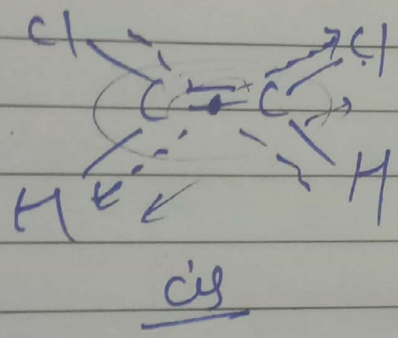 Cl Cl
C = C
H H
cis